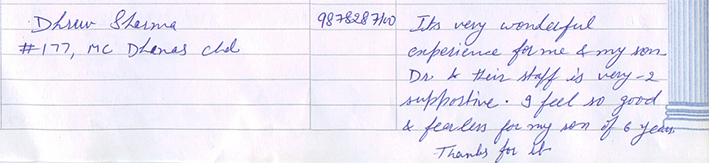 Dhruv Sharma
#177, MC Dhanas chd
9878287100
Its very wonderful
experience for me & my son
Dr. & their staff is very-2
supportive. I feel so good
& fearless for my son of 6 years.
Thanks for it